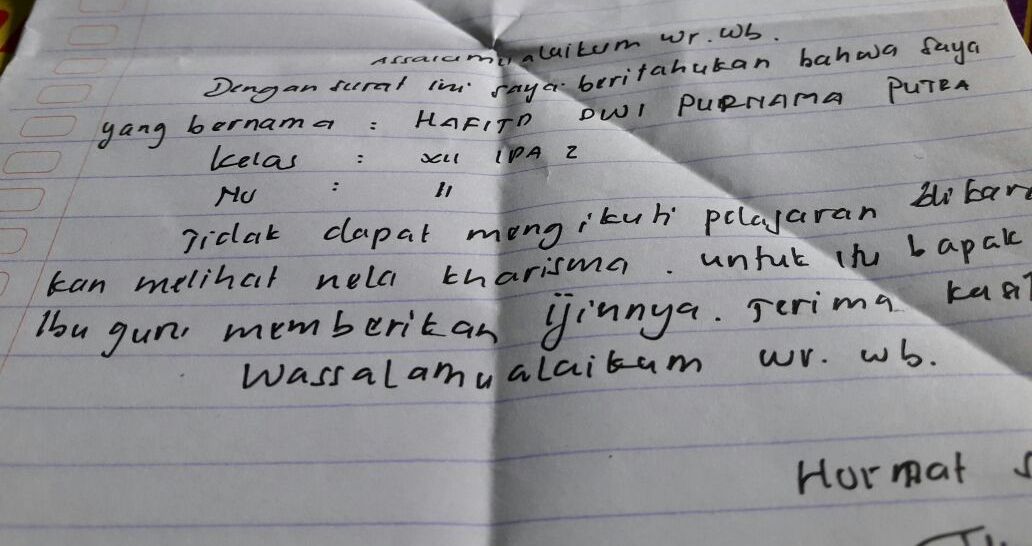 Assalamualaikum wr. wb.
Dengan surat ini saya beritahukan bahwa saya
yang bernama : HAFITD DWI PURNAMA PUTRA
Kelas : XII IPA 2
No : 11
Tidak dapat mengikuti pelajaran di kare
kan melihat nela kharisma . untuk itu bapak
Ibu guru memberikan ijinnya. Terima kasi
Wassalamualaikum wr. wb.
Hormat s